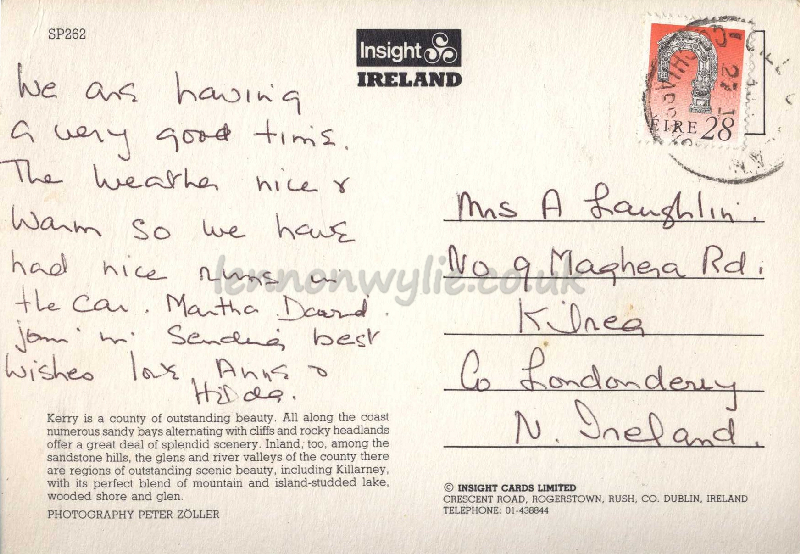 SP262
Insight
IRELAND
EIRE 28
We are having
a very good time.
The weather nice &
warm so we have
had nice runs in
the car. Martha David
join in sending best
wishes love Anne &
Hilda.
Mrs A Laughlin.
No 9 Maghera Rd.
Kilrea
Co Londonderry
N. Ireland.
lennonwylie.co.uk
Kerry is a county of outstanding beauty. All along the coast
numerous sandy bays alternating with cliffs and rocky headlands
offer a great deal of splendid scenery. Inland, too, among the
sandstone hills, the glens and river valleys of the county there
are regions of outstanding scenic beauty, including Killarney,
with its perfect blend of mountain and island-studded lake,
wooded shore and glen.
PHOTOGRAPHY PETER ZÖLLER
© INSIGHT CARDS LIMITED
CRESCENT ROAD, ROGERSTOWN, RUSH, CO. DUBLIN, IRELAND
TELEPHONE: 01-436844